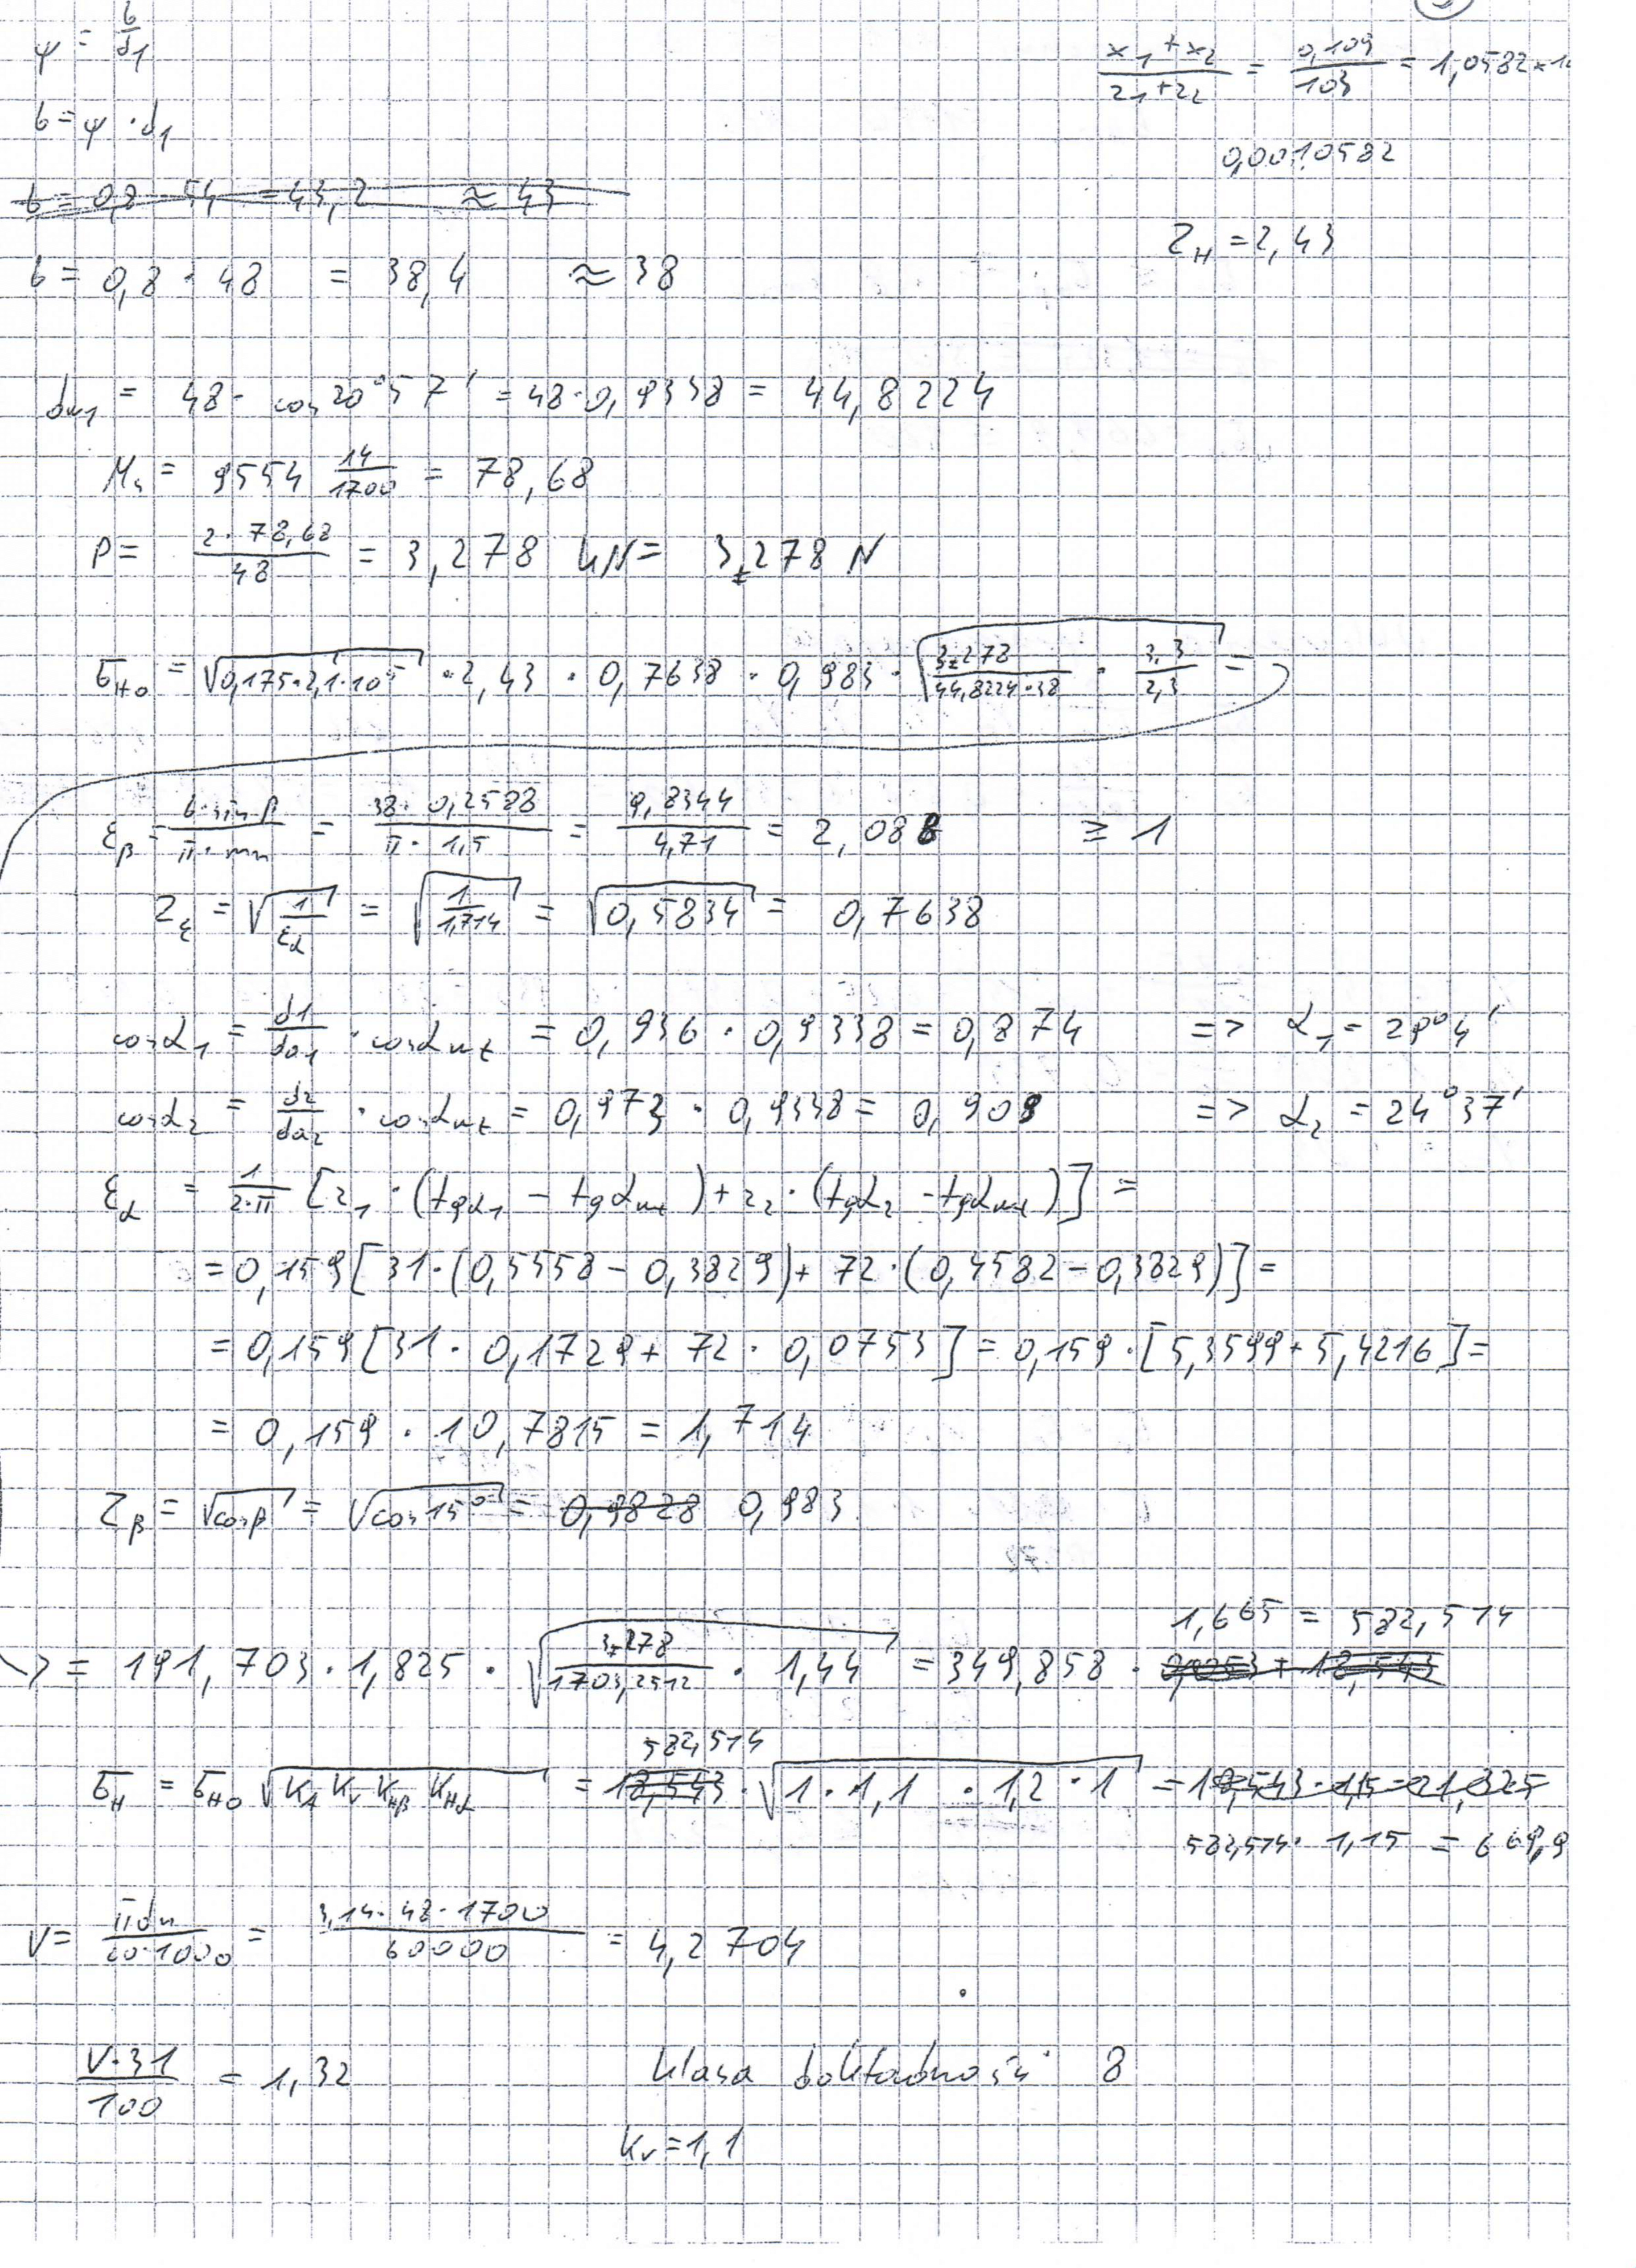 ψ = b/d1
(x1 + x2)/(z1 + z2) = 0,109/103 = 1,0582 × 1
b = ψ · d1
0,0010582
b = 0,8 · 54 = 43,2 ≈ 43
ZH = 2,43
b = 0,8 · 48 = 38,4 ≈ 38
dw1 = 48 · cos 20°57' = 48 · 0,9338 = 44,8224
Ms = 9554 14/1700 = 78,68
P = (2 · 78,68)/48 = 3,278 kN = 3278 N
σHo = √(0,175 · 2,1 · 10⁵) · 2,43 · 0,7638 · 0,983 · √(3278/(44,8224 · 38) · 3,3/2,3) =
εβ = (b · sin β)/(π · mn) = (38 · 0,2588)/(π · 1,5) = 9,8344/4,71 = 2,088 ≥ 1
Zε = √(1/εα) = √(1/1,714) = √0,5834 = 0,7638
cos α1 = d1/da1 · cos αwt = 0,936 · 0,9338 = 0,874 => α1 = 29°4'
cos α2 = d2/da2 · cos αwt = 0,973 · 0,9338 = 0,909 => α2 = 24°37'
εα = 1/(2·π) [z1 · (tgα1 − tgαwt) + z2 · (tgα2 − tgαwt)] =
= 0,159 [31 · (0,5558 − 0,3829) + 72 · (0,4582 − 0,3829)] =
= 0,159 [31 · 0,1729 + 72 · 0,0753] = 0,159 · [5,3599 + 5,4216] =
= 0,159 · 10,7815 = 1,714
Zβ = √cosβ = √cos 15° = 0,9828 0,983
1,665 = 582,514
=> = 191,703 · 1,825 · √(3278/1703,2512 · 1,44) = 349,858 ·
582,514
σH = σHo √(KA Kv KHβ KHα) = 18,543 · √(1 · 1,1 · 1,2 · 1) = 18,543 · 1,15 = 21,325
582,514 · 1,15 = 669,9
V = πdn/(60·1000) = (3,14 · 48 · 1700)/60000 = 4,2704
(V · 31)/100 = 1,32 klasa dokładności 8
Kv = 1,1